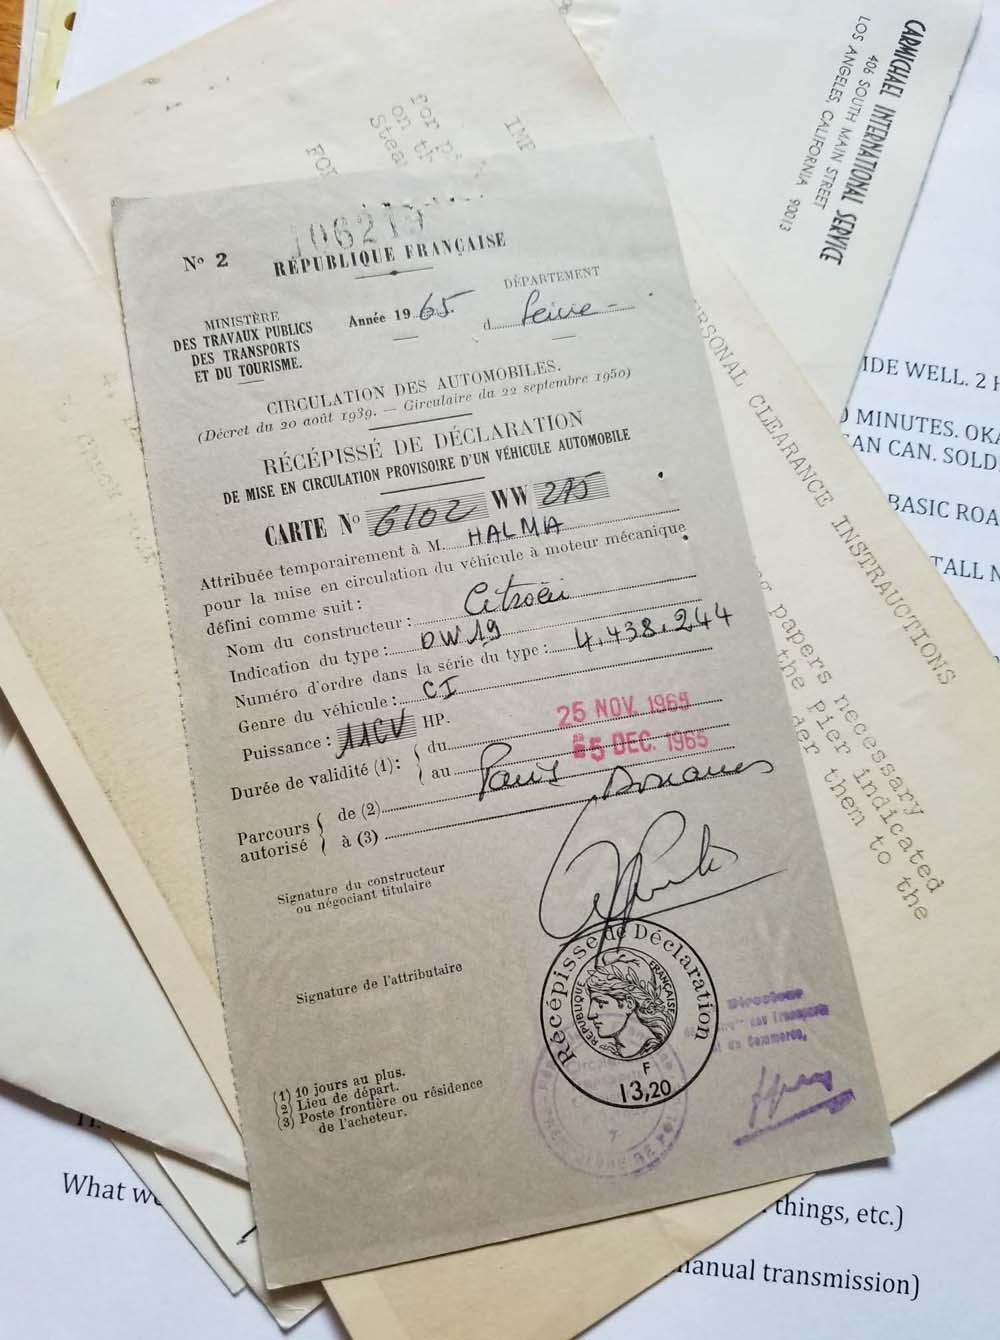 CARMICHAEL INTERNATIONAL SERVICE
406 SOUTH MAIN STREET
LOS ANGELES, CALIFORNIA 90013
IMP
for p
on th
Stea
FOR
106219
Nº 2
RÉPUBLIQUE FRANÇAISE
MINISTÈRE
DES TRAVAUX PUBLICS
DES TRANSPORTS
ET DU TOURISME.
Année 1965.
DÉPARTEMENT
d Seine -
CIRCULATION DES AUTOMOBILES.
(Décret du 20 août 1939. — Circulaire du 22 septembre 1950)
RÉCÉPISSÉ DE DÉCLARATION
DE MISE EN CIRCULATION PROVISOIRE D'UN VÉHICULE AUTOMOBILE
CARTE Nº 6102 WW 275
Attribuée temporairement à M. HALMA
pour la mise en circulation du véhicule à moteur mécanique
défini comme suit :
Nom du constructeur : Citroën
Indication du type : DW 19
Numéro d'ordre dans la série du type : 4.438.244
Genre du véhicule : CI
Puissance : 11CV HP.
Durée de validité (1) : du 25 NOV. 1965
au 5 DEC. 1965
Parcours autorisé de (2) Paris Douanes
à (3)
Signature du constructeur
ou négociant titulaire
Signature de l'attributaire
Récépissé de Déclaration
RÉPUBLIQUE FRANÇAISE
F
13,20
Directeur
des Transports
et du Commerce,
(1) 10 jours au plus.
(2) Lieu de départ.
(3) Poste frontière ou résidence
de l'acheteur.
RSONAL CLEARANCE INSTRAUCTIONS
g papers necessary
the Pier indicated
der them to the
IDE WELL. 2 H
0 MINUTES. OKA
EAN CAN. SOLD
BASIC ROA
TALL N
What w
things, etc.)
manual transmission)